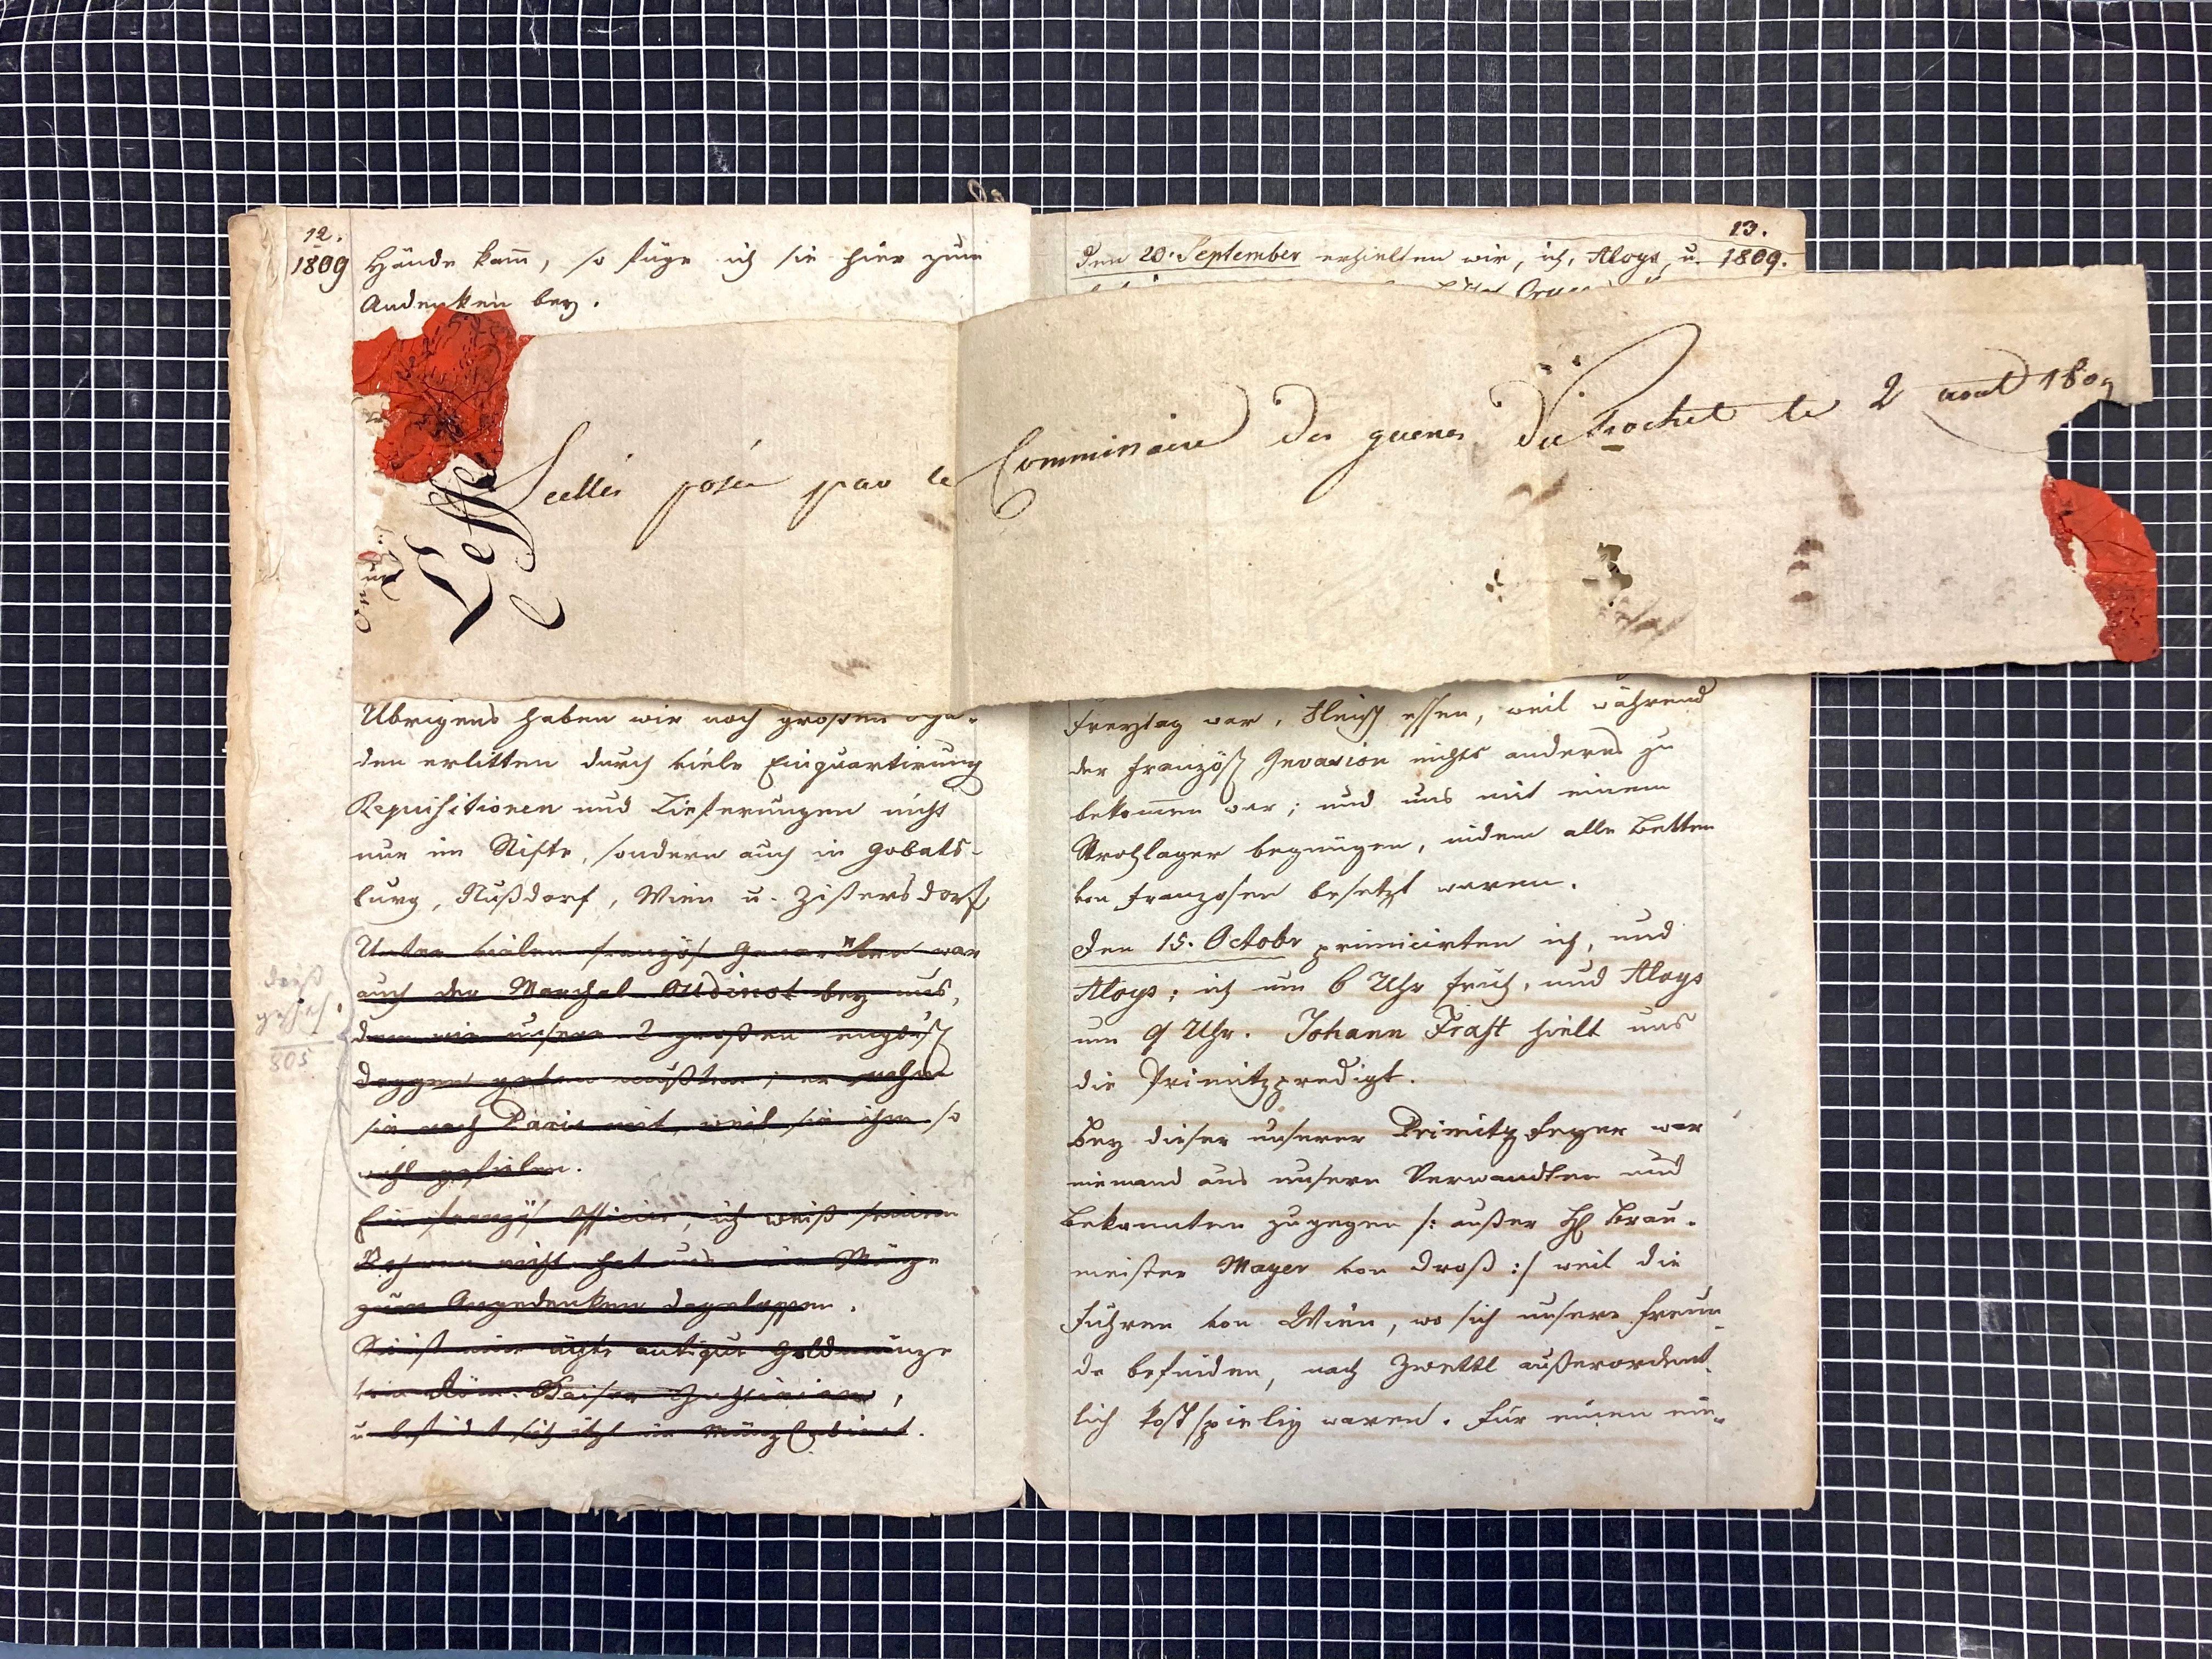 12.
1809
Hände kam̄, so füge ich sie hier zum
Andenken bey.
Scellés posés par le Commissaire des guerres Du Rochet le 2 aout 1809
Übrigens haben wir noch großen Scha-
den erlitten durch viele Einquartirung
Requisitionen und Lieferungen nicht
nur im Stifte, sondern auch in Gobats-
burg, Nußdorf, Wien u. Zistersdorf
Unter vielen französ. Generälen war
auch der Marchal Oudinot bey uns,
dem wir unsere 2 großen englisch
Doggen geben mußten; er nahm
sie nach Paris mit, weil sie ihm so
wohl gefielen.
Ein französ. Officier, ich weiß seinen
Nahmen nicht hat uns eine Münze
zum Angedenken dagelassen.
Sie ist eine ächte antique Goldmünze
vom Röm. Kaiser Justinian,
u. befindet sich itzt im Münz Cabinet.
dieß
geschah
805
13.
1809.
Den 20. September erhielten wir, ich, Aloys, u.
Freytag war, Fleisch essen, weil während
der französ. Invasion nichts anderes zu
bekom̄en war; und uns mit einem
Strohlager begnügen, indem alle Betten
von Franzosen besetzt waren.
Den 15. Octobr primicirten ich, und
Aloys; ich um 6 Uhr früh, und Aloys
um 9 Uhr. Johann Frast hielt uns
die Primitzpredigt.
Bey dieser unserer Primitzfeyer war
niemand aus unsern Verwandten und
Bekannten zugegen /: außer H. Brau-
meister Mayer von Droß :/ weil die
Fuhren von Wien, wo sich unsere Freun-
de befinden, nach Zwettl außerordent-
lich kostspielig waren. Für einen ein-